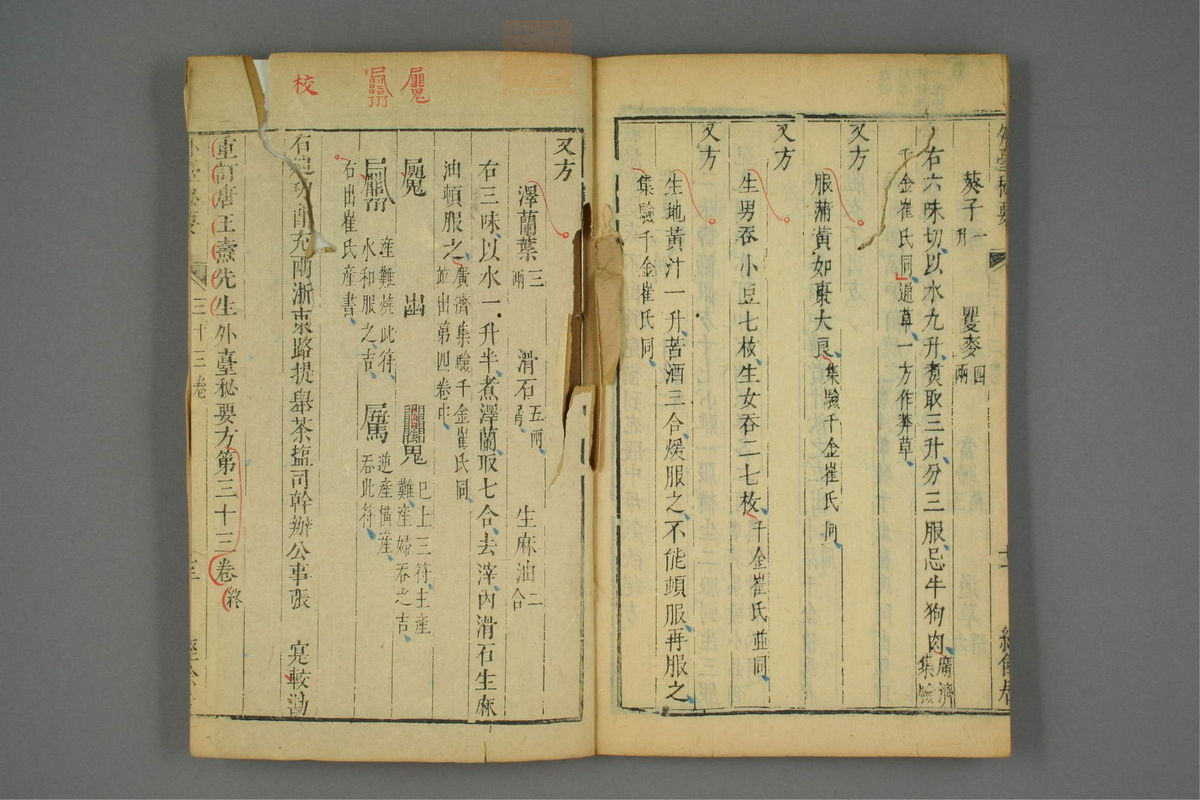 葵子一升 瞿麥四兩
右六味切以水九升煮取三升分三服忌牛狗肉廣濟集驗
千金崔氏同通草一方作莽草
又方
服蒲黃如棗大良集驗千金崔氏同
又方
生男吞小豆七枚生女吞二七枚千金崔氏並同
又方
生地黃汁一升苦酒三合煖服之不能頓服再服之
集驗千金崔氏同
又方
澤蘭葉三兩 滑石五兩屑 生麻油二合
右三味以水一升半煮澤蘭取七合去滓內滑石生麻
油頓服之廣濟集驗千金崔氏同並出第四卷中
產難燒此符水和服之吉
已上三符主產難產婦吞之吉
逆產橫產吞此符
右出崔氏產書
右迪功郎充兩浙東路提舉茶塩司幹辦公事張 寔較勘
重訂唐王燾先生外臺秘要方第三十三卷終
三十三卷
校